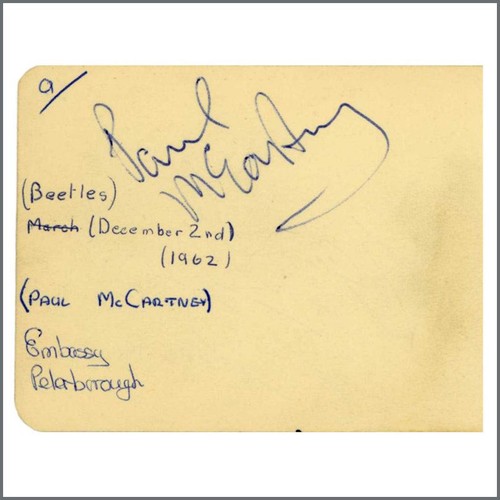 a
Paul
McCartney
(Beetles)
March (December 2nd)
(1962)
(PAUL McCARTNEY)
Embassy
Peterborough